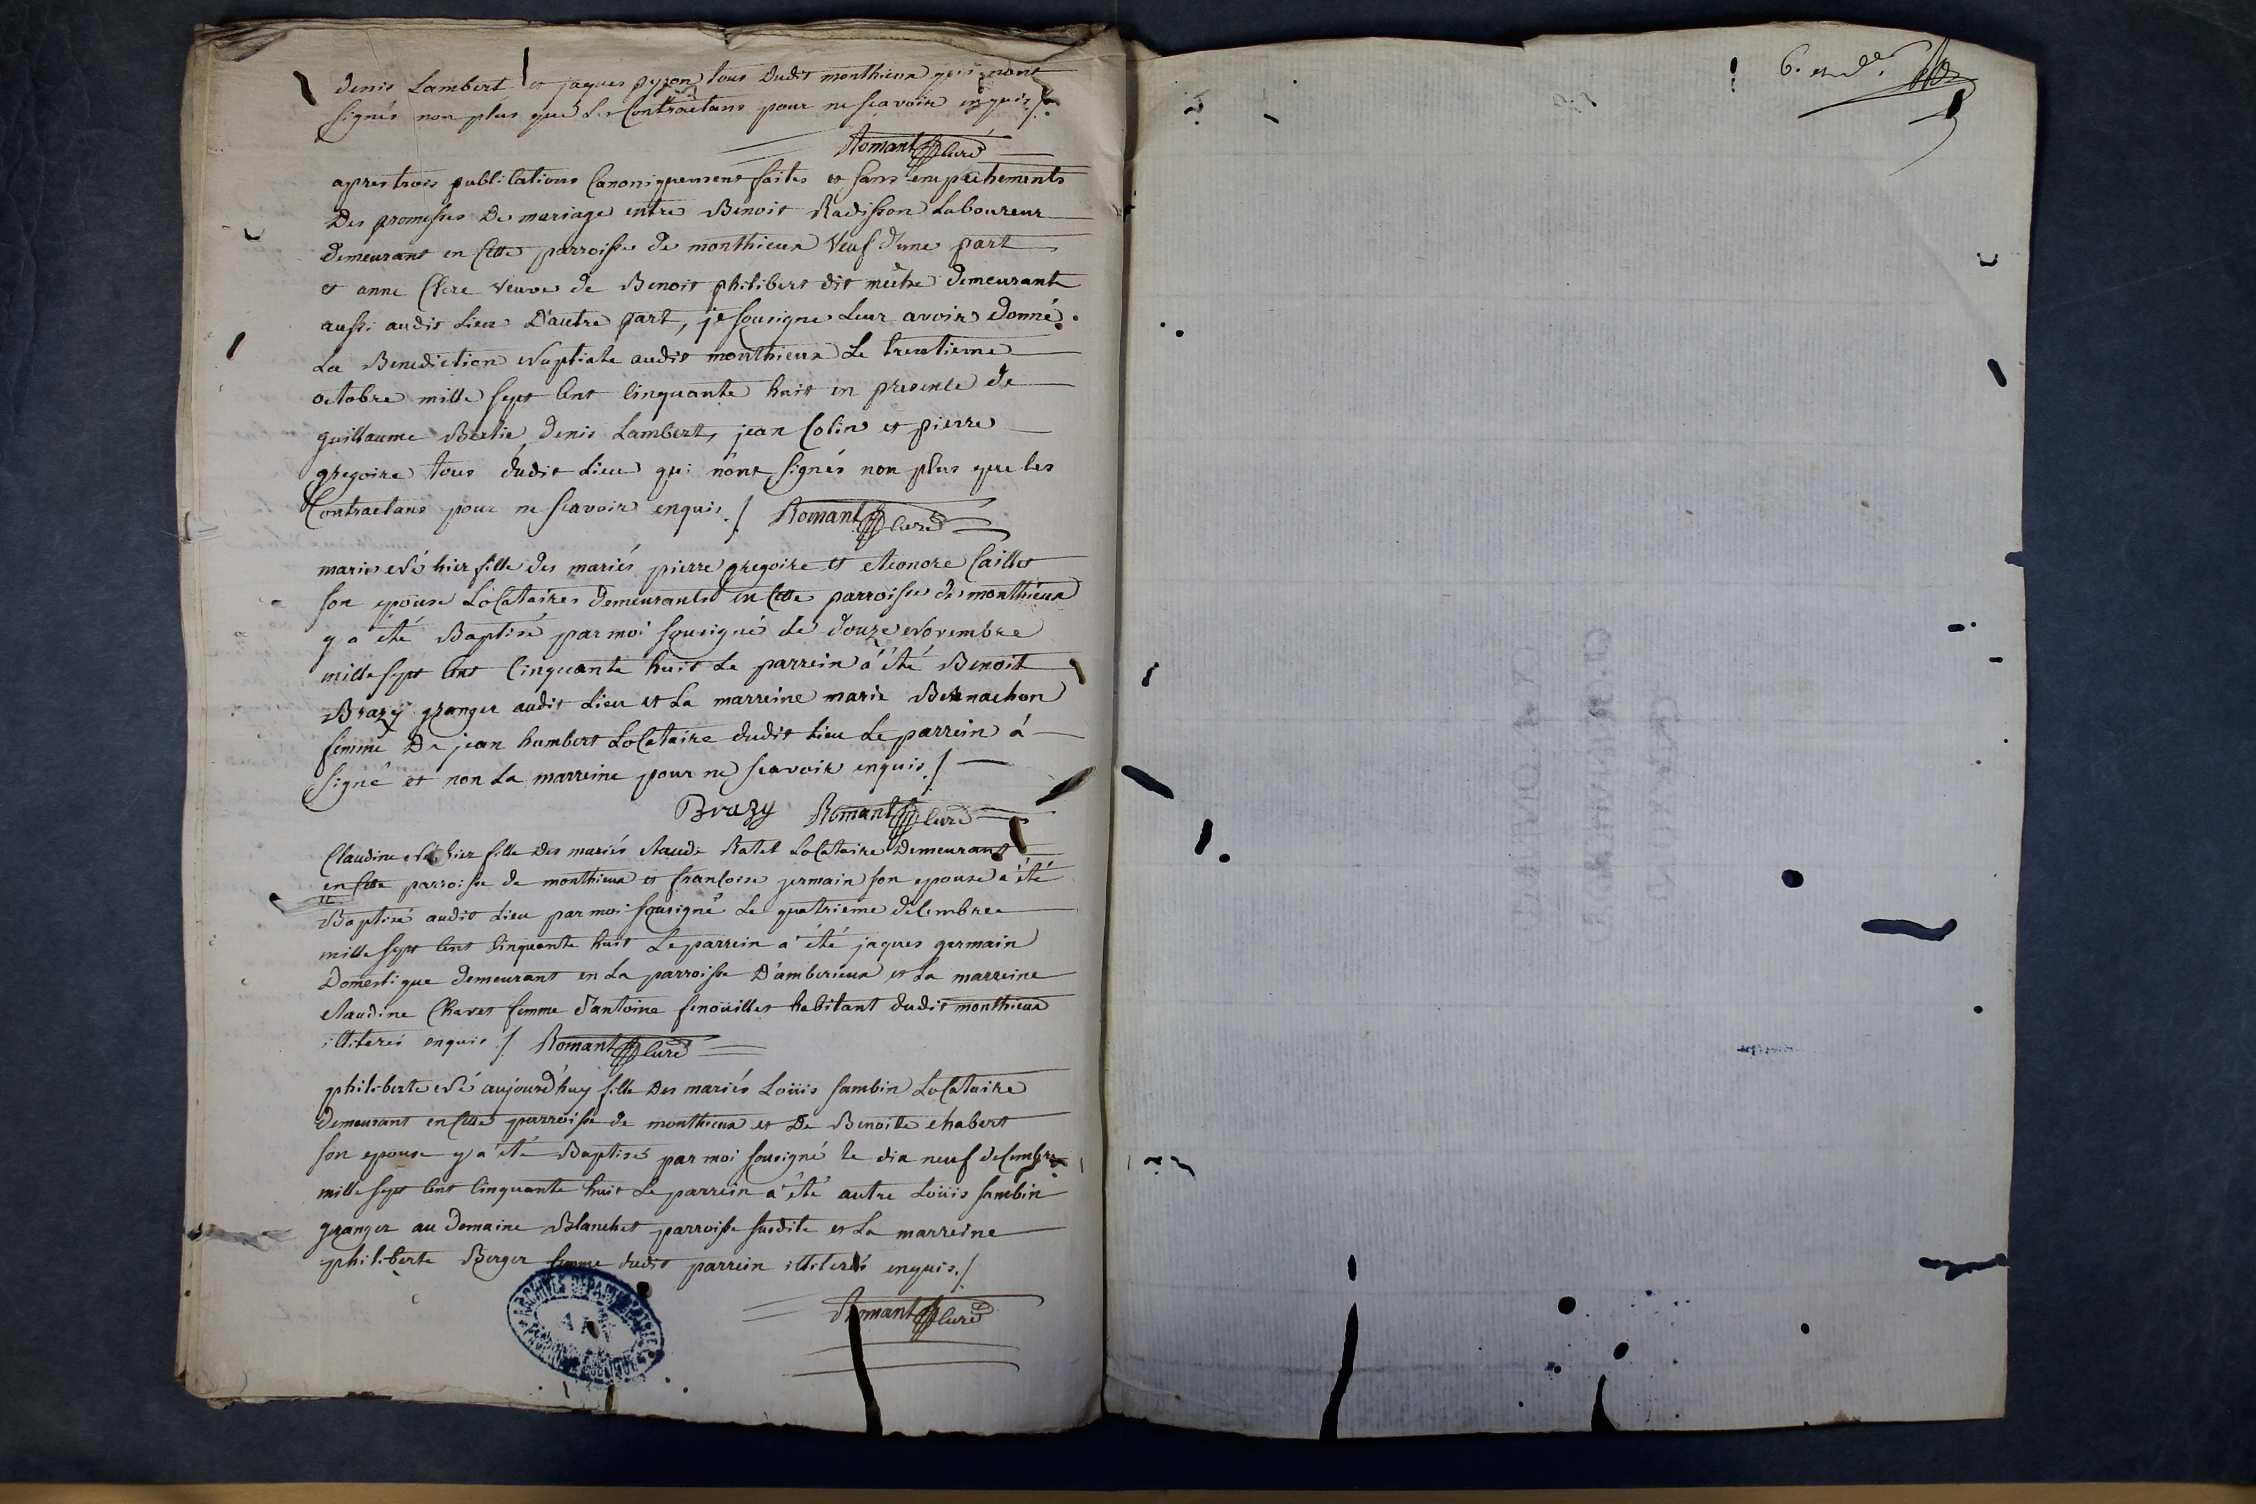 denis Lambert et jaques pyzon tous dudit monthieux qui n'ont
signés non plus que Les Contractans pour ne scavoir enquis ./.
Romant Curé
apres trois publications Canoniquement faites et sans empechements
Des promesses De mariage entre Benoit Radisson Laboureur
demeurant en Cette parroisse de monthieux Veuf d'une part
et anne Clere veuve de Benoit philibert dit meitre demeurante
aussi audit Lieu D'autre part, je sousigne Leur avoir donné
La Benediction Nuptiale audit monthieux Le trentieme
octobre mille sept Cent Cinquante huit en presence de
guillaume Bertie, denis Lambert, jean Colin et pierre
gregoire tous dudit Lieu qui n'ont signés non plus que les
Contractans pour ne scavoir enquis ./. Romant Curé
marie Né hier fille des mariés pierre gregoire et eleonore Caillet
son epouse LoCataires demeurants en Cette parroisse de monthieux
y a été Baptisé par moi sousigné Le douze Novembre
mille sept Cent Cinquante huit Le parrein a été Benoit
Brazy granger audit Lieu et La marreine marie Bernachon
femme De jean humbert LoCataire dudit Lieu Le parrein à
signé et non La marreine pour ne scavoir enquis ./.
Brazy Romant Curé
Claudine Né hier fille Des mariés claude Ratel LoCataire Demeurant
en Cette parroisse de monthieux et francoise germain son epouse a été
Baptisé audit Lieu par moi sousigné Le quatrieme deCembre
mille sept Cent Cinquante huit Le parrein a été jaques germain
Domestique demeurant en La parroisse D'amberieux et La marreine
claudine Chavet femme d'antoine fenoüillet habitant dudit monthieux
illiterés enquis ./. Romant Curé
philiberte Né aujourd'huy fille Des mariés Loüis sambin LoCataire
demeurant en Cette parroisse de monthieux et De Benoite chabert
son epouse y a été Baptisé par moi sousigné le dix neuf deCembre
mille sept Cent Cinquante huit Le parrein a été autre Loüis sambin
granger au domaine Blanchet parroisse susdite et La marreine
philiberte Berger femme dudit parrein illiterés enquis ./.
Romant Curé
ARCHIVES DEPARTEMENTALES
AIN
6. et der.